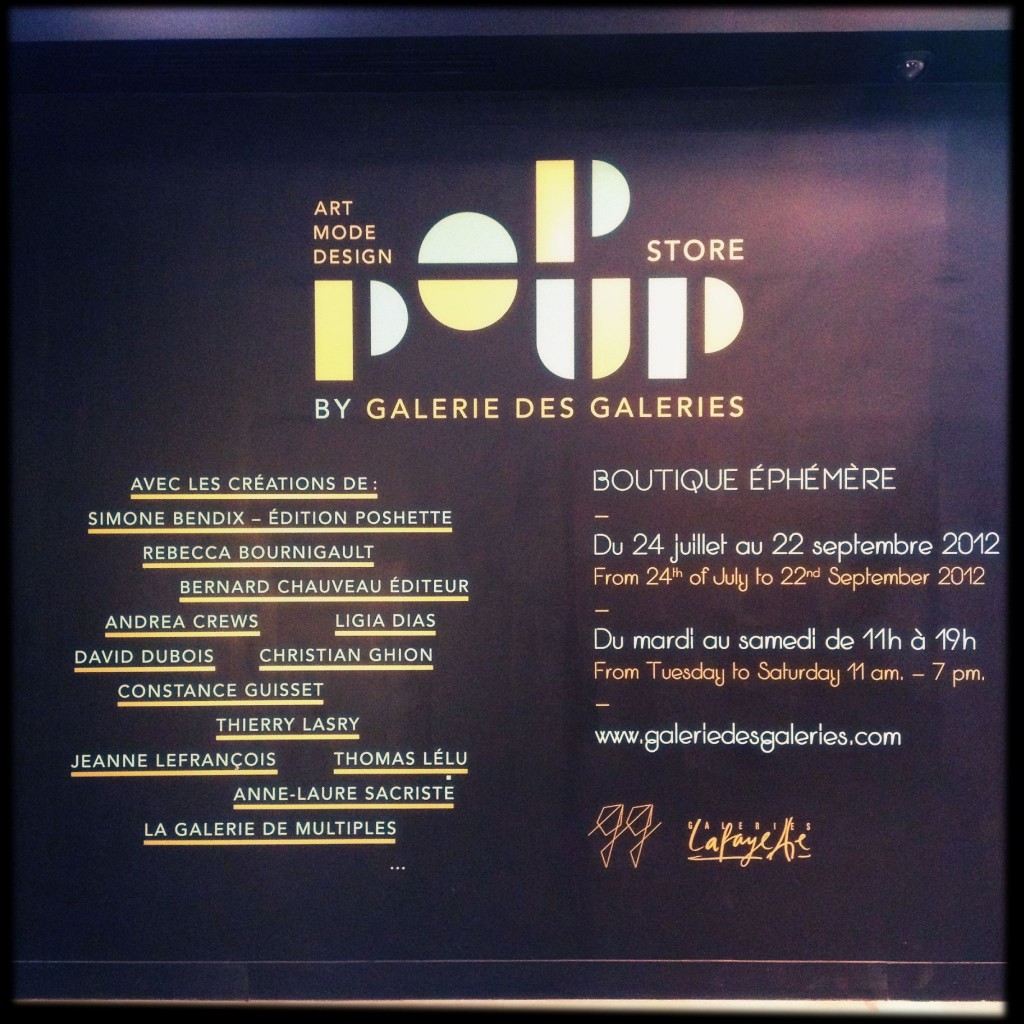 ART
MODE
DESIGN
POP UP
STORE
BY GALERIE DES GALERIES
AVEC LES CRÉATIONS DE :
SIMONE BENDIX – ÉDITION POSHETTE
REBECCA BOURNIGAULT
BERNARD CHAUVEAU ÉDITEUR
ANDREA CREWS LIGIA DIAS
DAVID DUBOIS CHRISTIAN GHION
CONSTANCE GUISSET
THIERRY LASRY
JEANNE LEFRANÇOIS THOMAS LÉLU
ANNE-LAURE SACRISTE
LA GALERIE DE MULTIPLES
...
BOUTIQUE ÉPHÉMÈRE
–
Du 24 juillet au 22 septembre 2012
From 24th of July to 22nd September 2012
–
Du mardi au samedi de 11h à 19h
From Tuesday to Saturday 11 am. – 7 pm.
–
www.galeriedesgaleries.com
gg
GALERIES
Lafayette